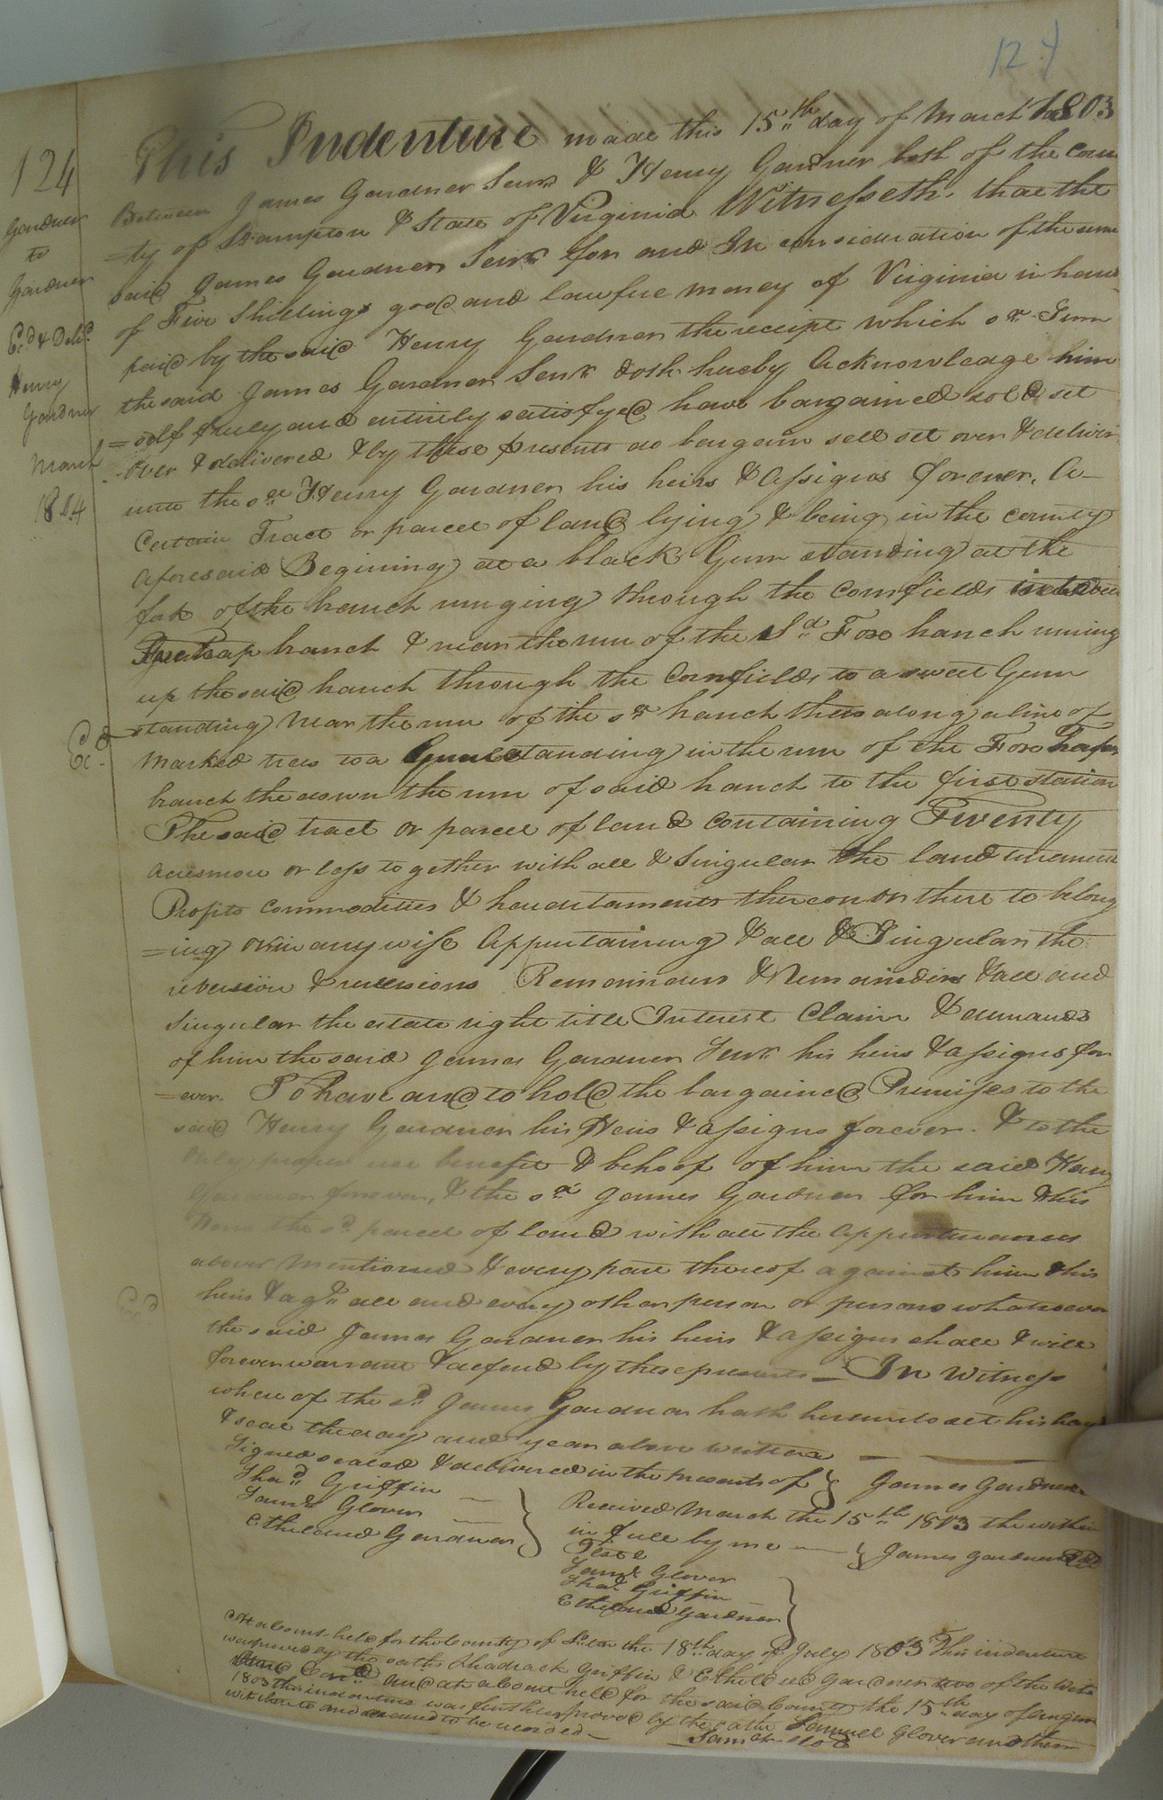 124
124
Gardner
to
Gardner
Henry
Gardner
March
1804
This Indenture made this 15th day of March 1803
Between James Gardner Senr & Henry Gardner both of the Coun
=ty of SHampton & State of Virginia Witnesseth, that the
said James Gardner Senr for and In consideration of the sum
of Five Shillings good and lawfue money of Virginia in hand
paid by the said Henry Gardner the receipt which sd Sum
the said James Gardner Senr doth hereby Acknowledge him
=self fully and entirely satisfyed have bargained sold set
over & delivered & by these presents do bargain sell set over & deliver
unto the sd Henry Gardner his heirs & Assigns forever, A
Certain Tract or parcel of land lying & being in the county
aforesaid Begining at a black Gum standing at the
fork of the branch runing through the Cornfields
branch & near the run of the Sd Fox branch runing
up the said branch through the Cornfields to a sweet Gum
standing Near the run of the sd branch thens along a line of
marked trees to a Gum standing in the run of the Fox Traps
branch the down the run of said branch to the first station
The said tract or parcel of land Containing Twenty
acres more or less to gether with all & Singular the land tenements
Profits commodities & hereditaments thereon or there to belong
=ing or in any wise Appurtaining & all & Singular the
reversion & revertions Remainders & Remainders & all and
Singular the estate right title Interest Claim & demands
of him the said James Gardner Senr his heirs & assigns for
=ever. To Have and to hold the bargained Premises to the
said Henry Gardner his Heirs & assigns forever. & to the
only proper use benefit & behoof of him the said Henry
Gardner forever, & the sd James Gardner for him & his
Heirs the sd parcel of land with all the Appurtenances
above Mentioned & every part thereof against him & his
heirs & agst all and every other person or persons whatsoever
the said James Gardner his heirs & assigns shall & will
forever warrant & defend by these presents — In Witness
where of the sd James Gardner hath hereunto set his hand
& seal the day and year above written
Signed sealed & delivered in the presents of } James Gardner
Shad Griffin
Saml Glover
Etheldred Gardner
Received March the 15th 1803 the within
in full by me } James Gardner
Teste
Saml Glover
Shad Griffin
Etheldred Gardner
At a Court held for the County of the 18th day of July 1803 This indenture
was proved by the oaths Shadrack Griffin & Etheldred Gardner two of the Wits
and at a Court held for the said County the 15th day of August
1803 this indenture was further proved by the oath Samuel Glover another
witness thereto and ordered to be recorded —